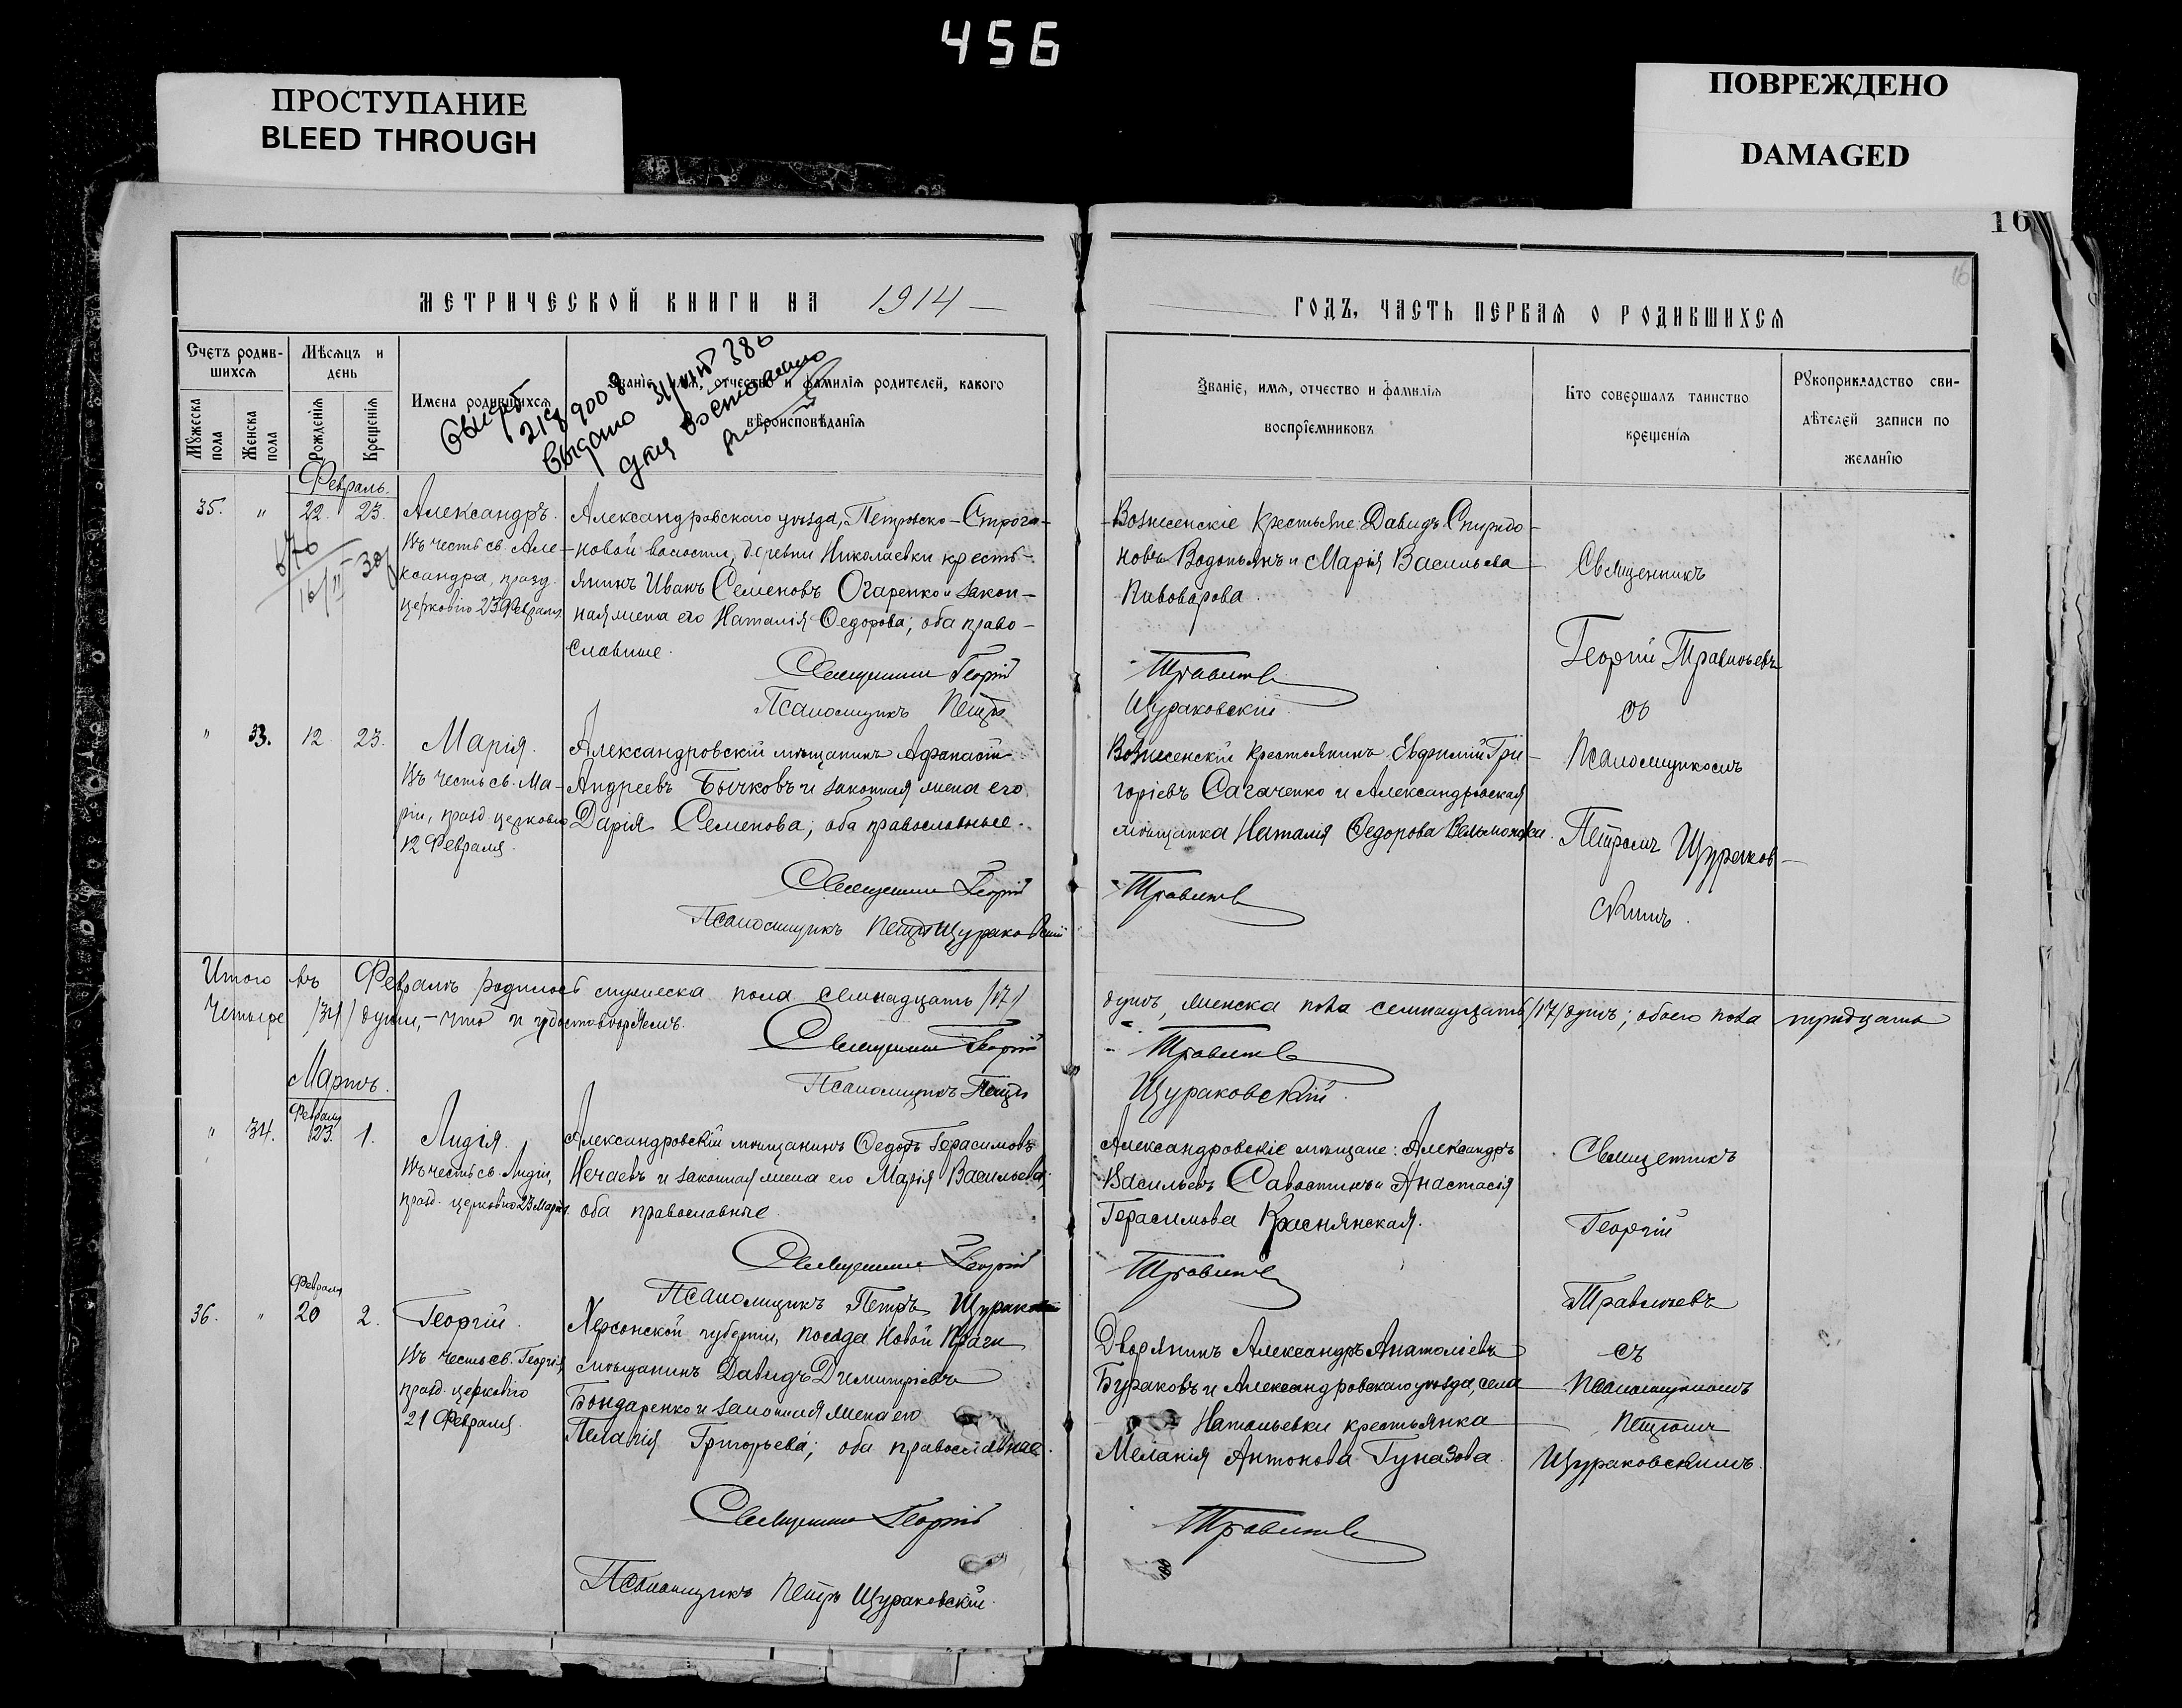 456
ПРОСТУПАНИЕ
BLEED THROUGH
ПОВРЕЖДЕНО
DAMAGED
16
16
МЕТРИЧЕСКОЙ КНИГИ НА 1914
ГОДЪ, ЧАСТЬ ПЕРВАЯ О РОДИВШИХСЯ
Счетъ родив-
шихся
Мѣсяцъ и
день
Мужеска
пола
Женска
пола
Рожденія
Крещенія
Имена родившихся
Званіе, имя, отчество и фамилія родителей, какого
вѣроисповѣданія
Званіе, имя, отчество и фамилія
воспріемниковъ
Кто совершалъ таинство
крещенія
Рукоприкладство сви-
дѣтелей записи по
желанію
выдано
Февраль.
35. " 22. 23.
Александръ.
Въ честь св. Але-
ксандра, празд.
церковію 23 Февраля.
Александровскаго уѣзда, Петровско-Строга-
новой волости, деревни Николаевки кресть-
янинъ Иванъ Семеновъ Огаренко и закон-
ная жена его Наталія Ѳедорова; оба право-
славные.
Священникъ Георгій
Псаломщикъ Петръ
Вознесенскіе крестьяне: Давидъ Спиридо-
новъ Водопьянъ и Марія Васильева
Пивоварова.
Травличевъ
Щураковскій.
Священникъ
Георгій Травличевъ
съ
Псаломщикомъ
Петромъ Щураков-
скимъ.
" 33. 12 23.
Марія.
Въ честь св. Ма-
ріи, празд. церковію
12 Февраля.
Александровскій мѣщанинъ Афанасій
Андреевъ Бычковъ и законная жена его
Дарія Семенова; оба православные.
Священникъ Георгій
Псаломщикъ Петръ Щураковскій
Вознесенскій крестьянинъ Евфимій Гри-
горіевъ Сагаченко и Александровская
мѣщанка Наталія Ѳедорова
Травличевъ
Итого въ Февралѣ родилось мужеска пола семнадцать /17/
душъ, женска пола семнадцать /17/ душъ; обоего пола тридцать
четыре /34/ души, - что и удостовѣряемъ.
Священникъ Георгій
Травличевъ
Псаломщикъ Петръ
Щураковскій.
Мартъ.
Февраля
" 34. 23. 1.
Лидія.
Въ честь св. Лидіи,
празд. церковію 23 Марта.
Александровскій мѣщанинъ Ѳедоръ Герасимовъ
Нечаевъ и законная жена его Марія Васильева;
оба православные.
Священникъ Георгій
Псаломщикъ Петръ Щураковскій
Александровскіе мѣщане: Александръ
Васильевъ Савостинъ и Анастасія
Герасимова Краснянская.
Травличевъ
Священникъ
Георгій
Травличевъ
съ
Псаломщикомъ
Петромъ
Щураковскимъ.
Февраля
36. " 20 2.
Георгій.
Въ честь св. Георгія,
празд. церковію
21 Февраля.
Херсонской губерніи, посада Новой Праги
мѣщанинъ Давидъ Димитріевъ
Бондаренко и законная жена его
Пелагія Григорьева; оба православные.
Священникъ Георгій
Псаломщикъ Петръ Щураковскій.
Дворянинъ Александръ Анатоліевъ
Бураковъ и Александровскаго уѣзда, села
Натальевки крестьянка
Меланія Антонова Гуназова.
Травличевъ